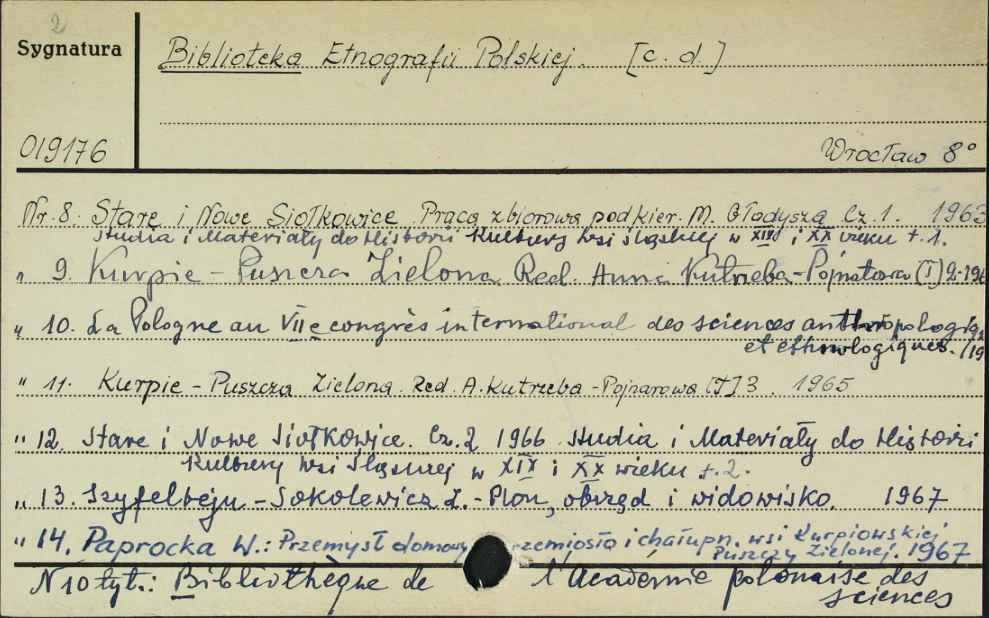 2
Sygnatura
Biblioteka Etnografii Polskiej. [c. d.]
019176
Wrocław 8°
Nr. 8. Stare i Nowe Siołkowice. Praca zbiorowa pod kier. M. Gładysza Cz. 1. 1963
Studia i Materiały do Historii Kultury Wsi Śląskiej w XIX i XX wieku t. 1.
" 9. Kurpie - Puszcza Zielona Red. Anna Kutrzeba-Pojnarowa [T] 2. 196
" 10. La Pologne au VIIe congrès international des sciences anthropologiq
et ethnologiques. /19
" 11. Kurpie - Puszcza Zielona. Red. A. Kutrzeba-Pojnarowa [T] 3. 1965
" 12. Stare i Nowe Siołkowice. Cz. 2 1966 Studia i Materiały do Historii
Kultury Wsi Śląskiej w XIX i XX wieku t. 2.
" 13. Szyfelbejn-Sokolewicz Z. - Plon, obrzęd i widowisko. 1967
" 14. Paprocka W.: Przemysł domowy rzemiosło i chałupn. wsi Kurpiowskiej
Puszczy Zielonej. 1967
N 10 tyt.: Bibliothèque de l'Académie polonaise des
sciences